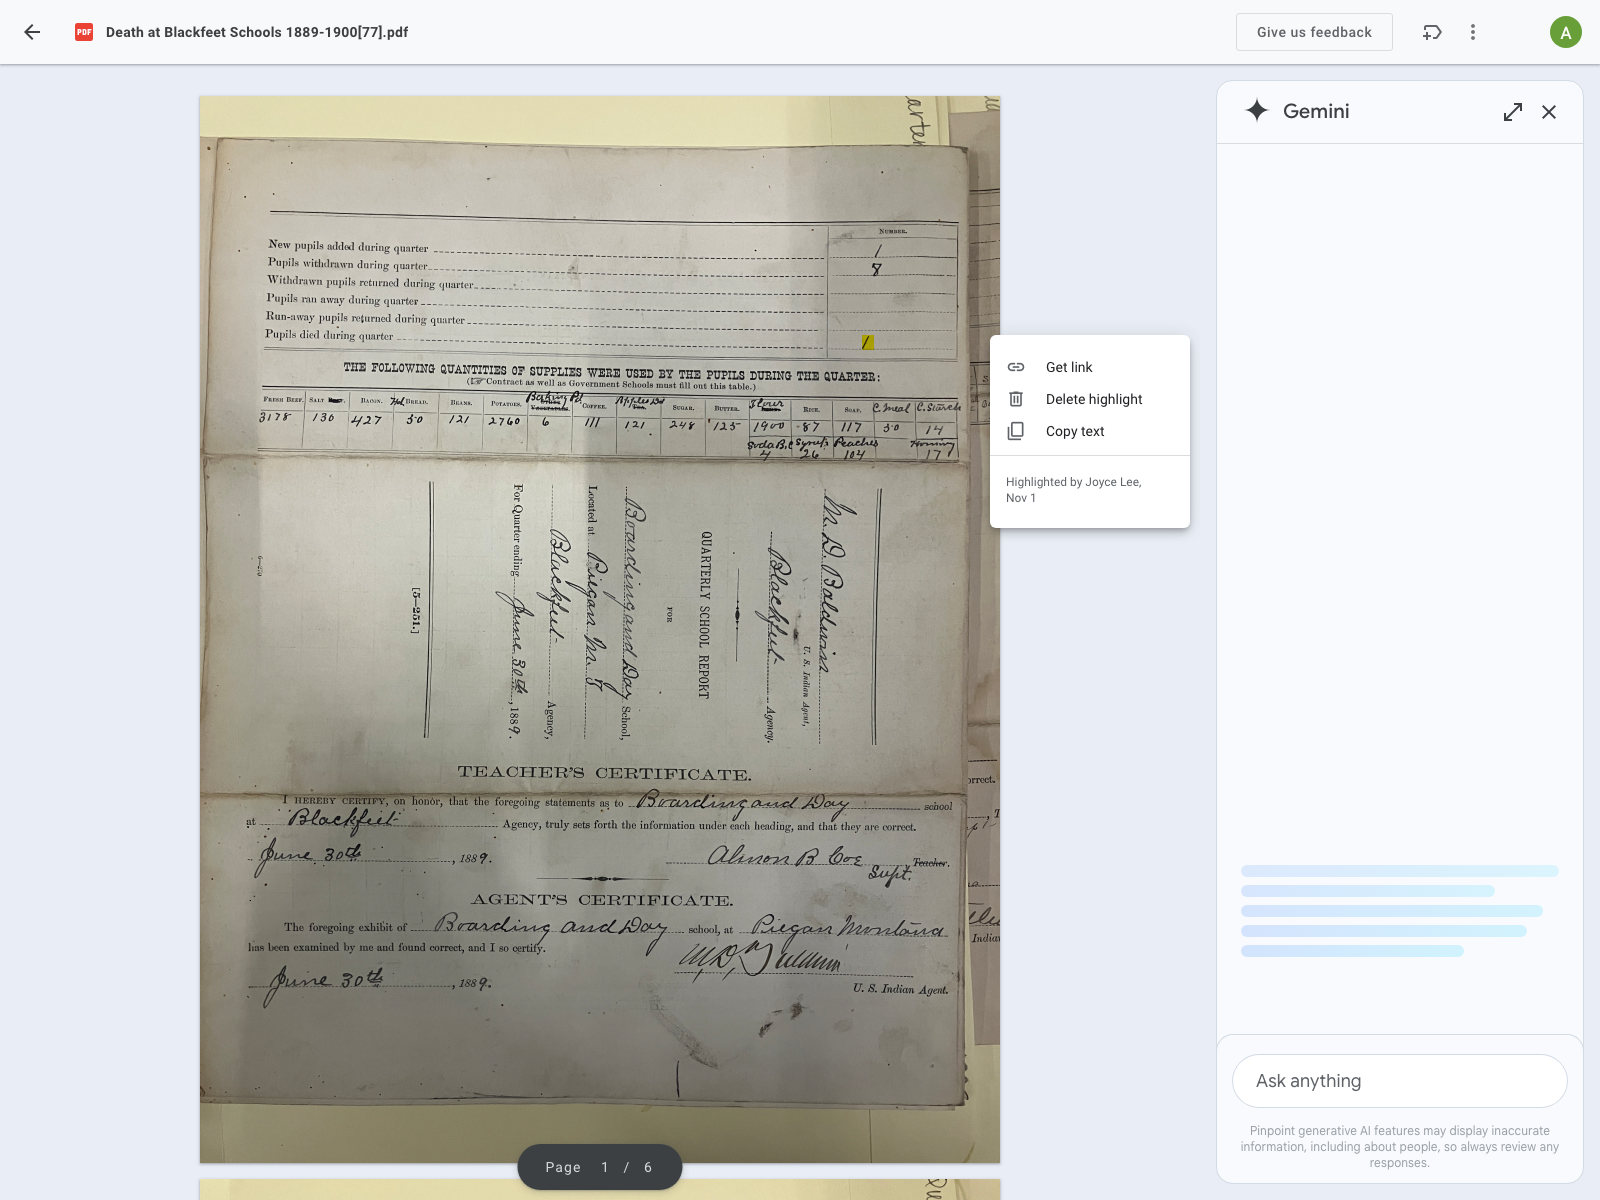 Death at Blackfeet Schools 1889-1900[77].pdf
Give us feedback
A
arter
NUMBER.
New pupils added during quarter 1
Pupils withdrawn during quarter 8
Withdrawn pupils returned during quarter
Pupils ran away during quarter
Run-away pupils returned during quarter
Pupils died during quarter /
THE FOLLOWING QUANTITIES OF SUPPLIES WERE USED BY THE PUPILS DURING THE QUARTER:
(☞ Contract as well as Government Schools must fill out this table.)
FRESH BEEF. SALT BACON. Hd BREAD. BEANS. POTATOES. Baking Pd. COFFEE. Apples Dd SUGAR. BUTTER. Flour RICE. SOAP. C. Meal C. Starch
3178 130 427 50 121 2760 6 111 121 248 125 1900 87 117 50 14
Soda B.C Syrups Peaches Hominy
4 26 104 17
M. D. Baldwin
U. S. Indian Agent,
Blackfeet Agency.
QUARTERLY SCHOOL REPORT
FOR
Boarding and Day School,
Located at Piegan M. T
Blackfeet Agency,
For Quarter ending June 30th, 1889.
[5-251.]
TEACHER'S CERTIFICATE.
I HEREBY CERTIFY, on honor, that the foregoing statements as to Boarding and Day school
at Blackfeet Agency, truly sets forth the information under each heading, and that they are correct.
June 30th, 1889. Almon B Coe Teacher.
Supt.
AGENT'S CERTIFICATE.
The foregoing exhibit of Boarding and Day school, at Piegan Montana
has been examined by me and found correct, and I so certify.
June 30th, 1889.
U. S. Indian Agent.
orrect.
Indian
Get link
Delete highlight
Copy text
Highlighted by Joyce Lee,
Nov 1
Page 1 / 6
Gemini
Ask anything
Pinpoint generative AI features may display inaccurate
information, including about people, so always review any
responses.